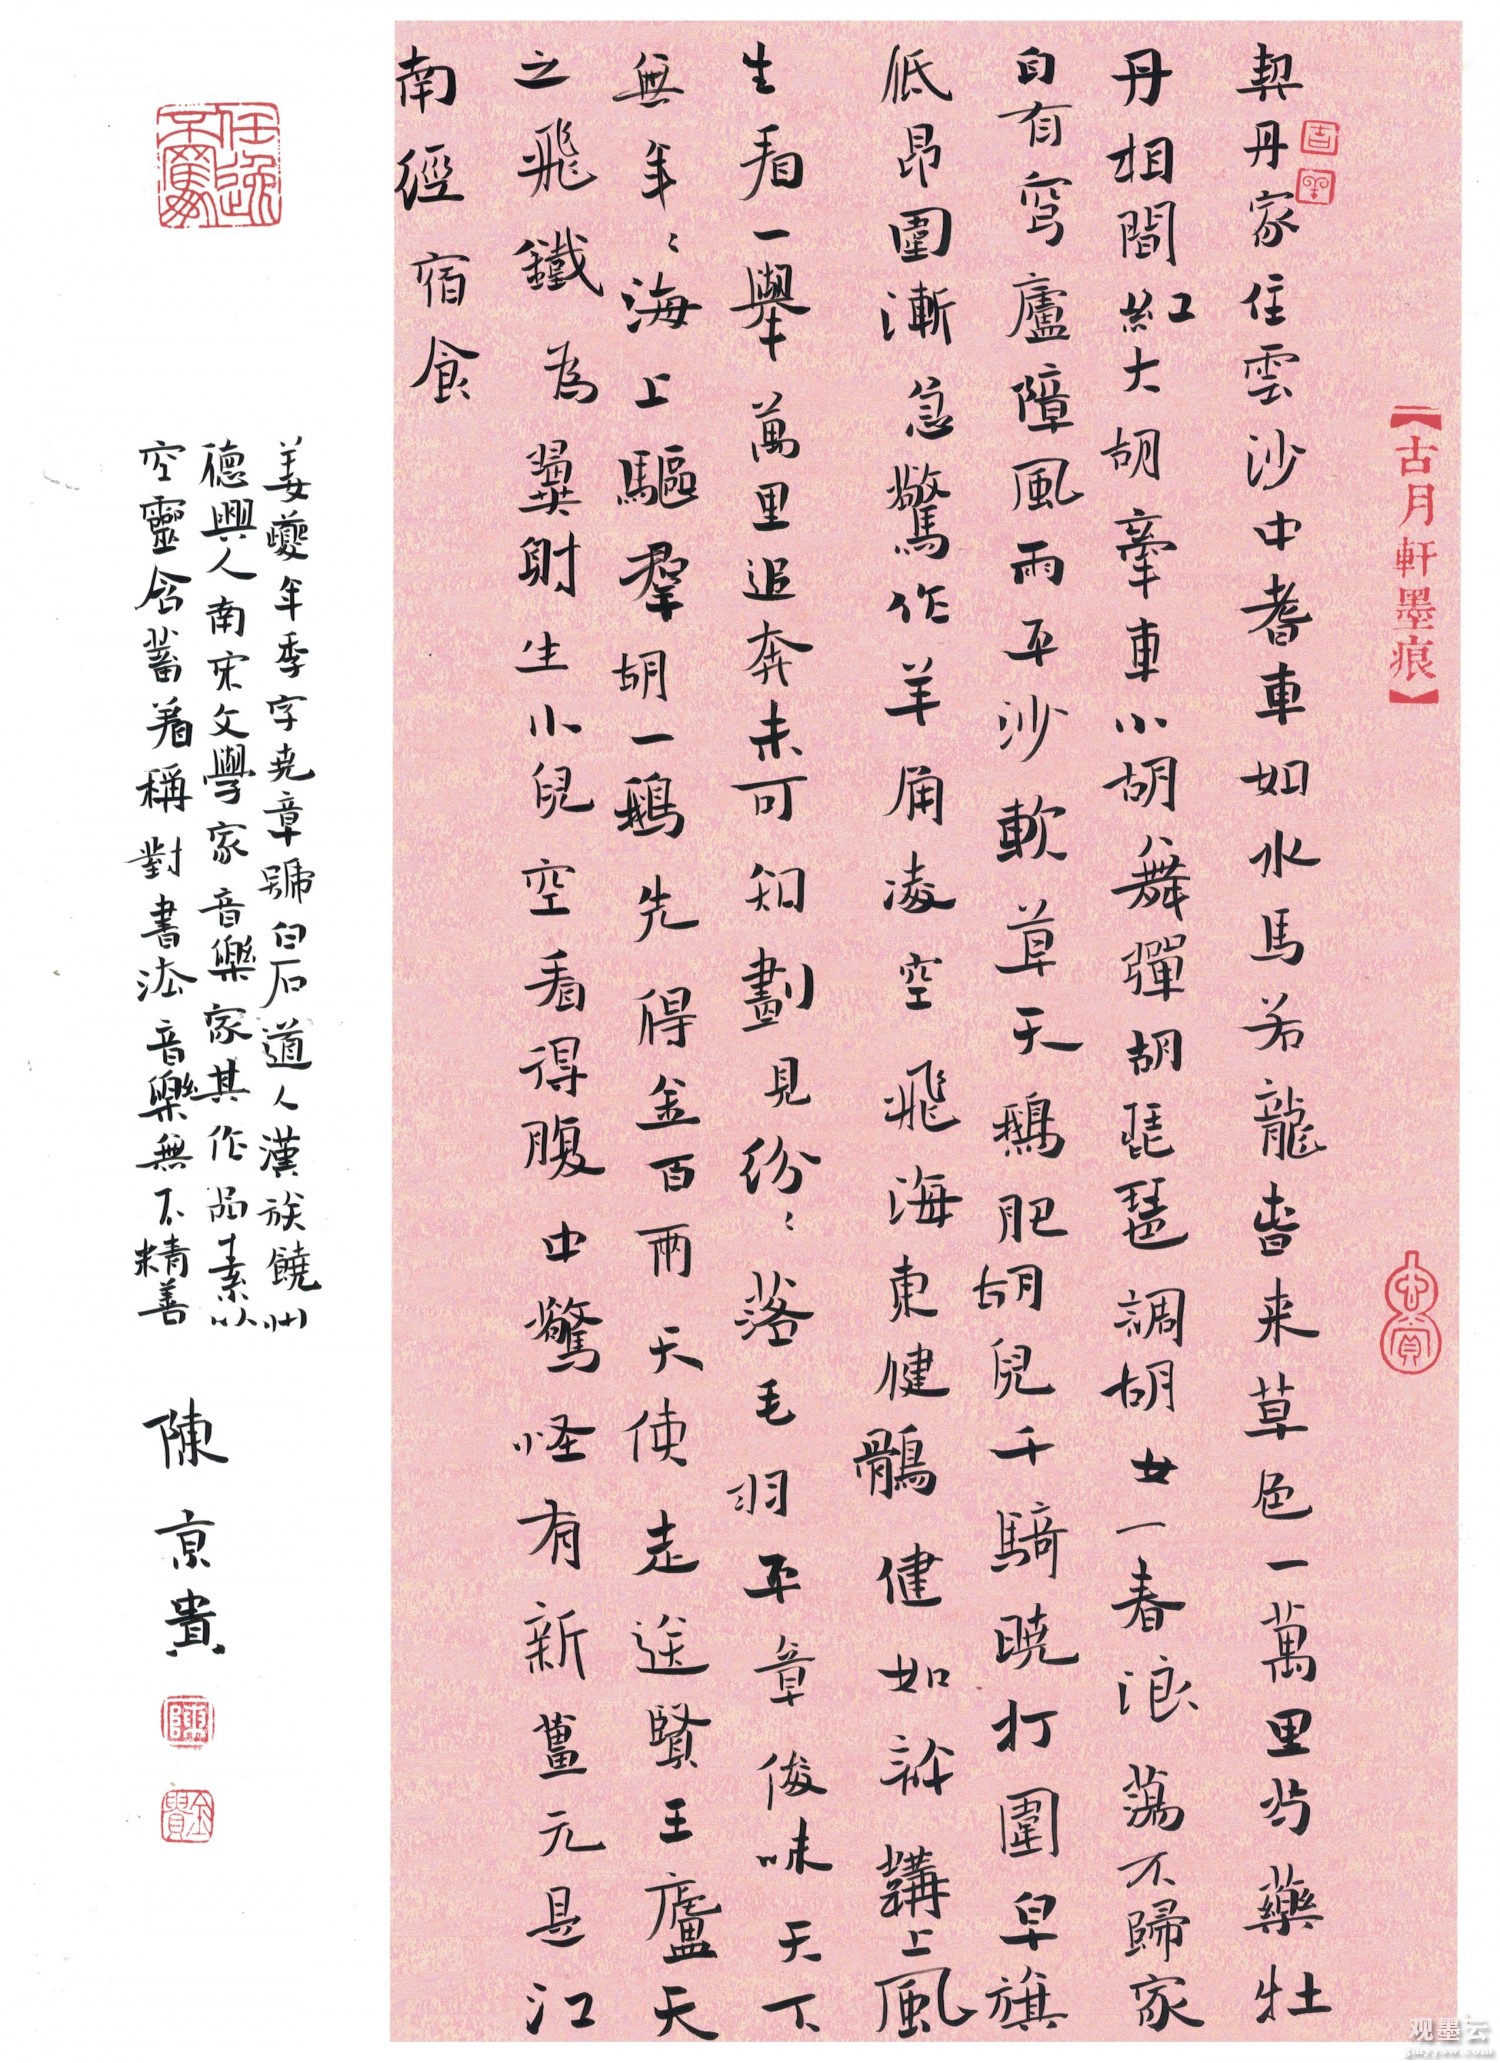 契丹家住雲沙中耆車如水馬若龍春来草色一萬里芍藥牡
丹相間紅大胡牽車小胡舞彈胡琵琶調胡女一春浪蕩不歸家
自有穹廬障風雨平沙軟草天鵝肥胡兒千騎曉打圍皂旗
低昂圍漸急驚作羊角凌空飛海東健鶻健如許韝上風
生看一舉萬里追奔未可知劃見紛〻落毛羽平章俊味天下
無年〻海上驅群胡一鵝先得金百兩天使走送賢王廬天
之飛鐵為翼射生小兒空看得腹中驚怪有新薑元是江
南經宿食
姜夔年季字堯章號白石道人漢族饒州
德興人南宋文學家音樂家其作品素以
空靈含蓄着稱對書法音樂無不精善
陳京貴
【古月軒墨痕】
观墨云
gmyyow.com